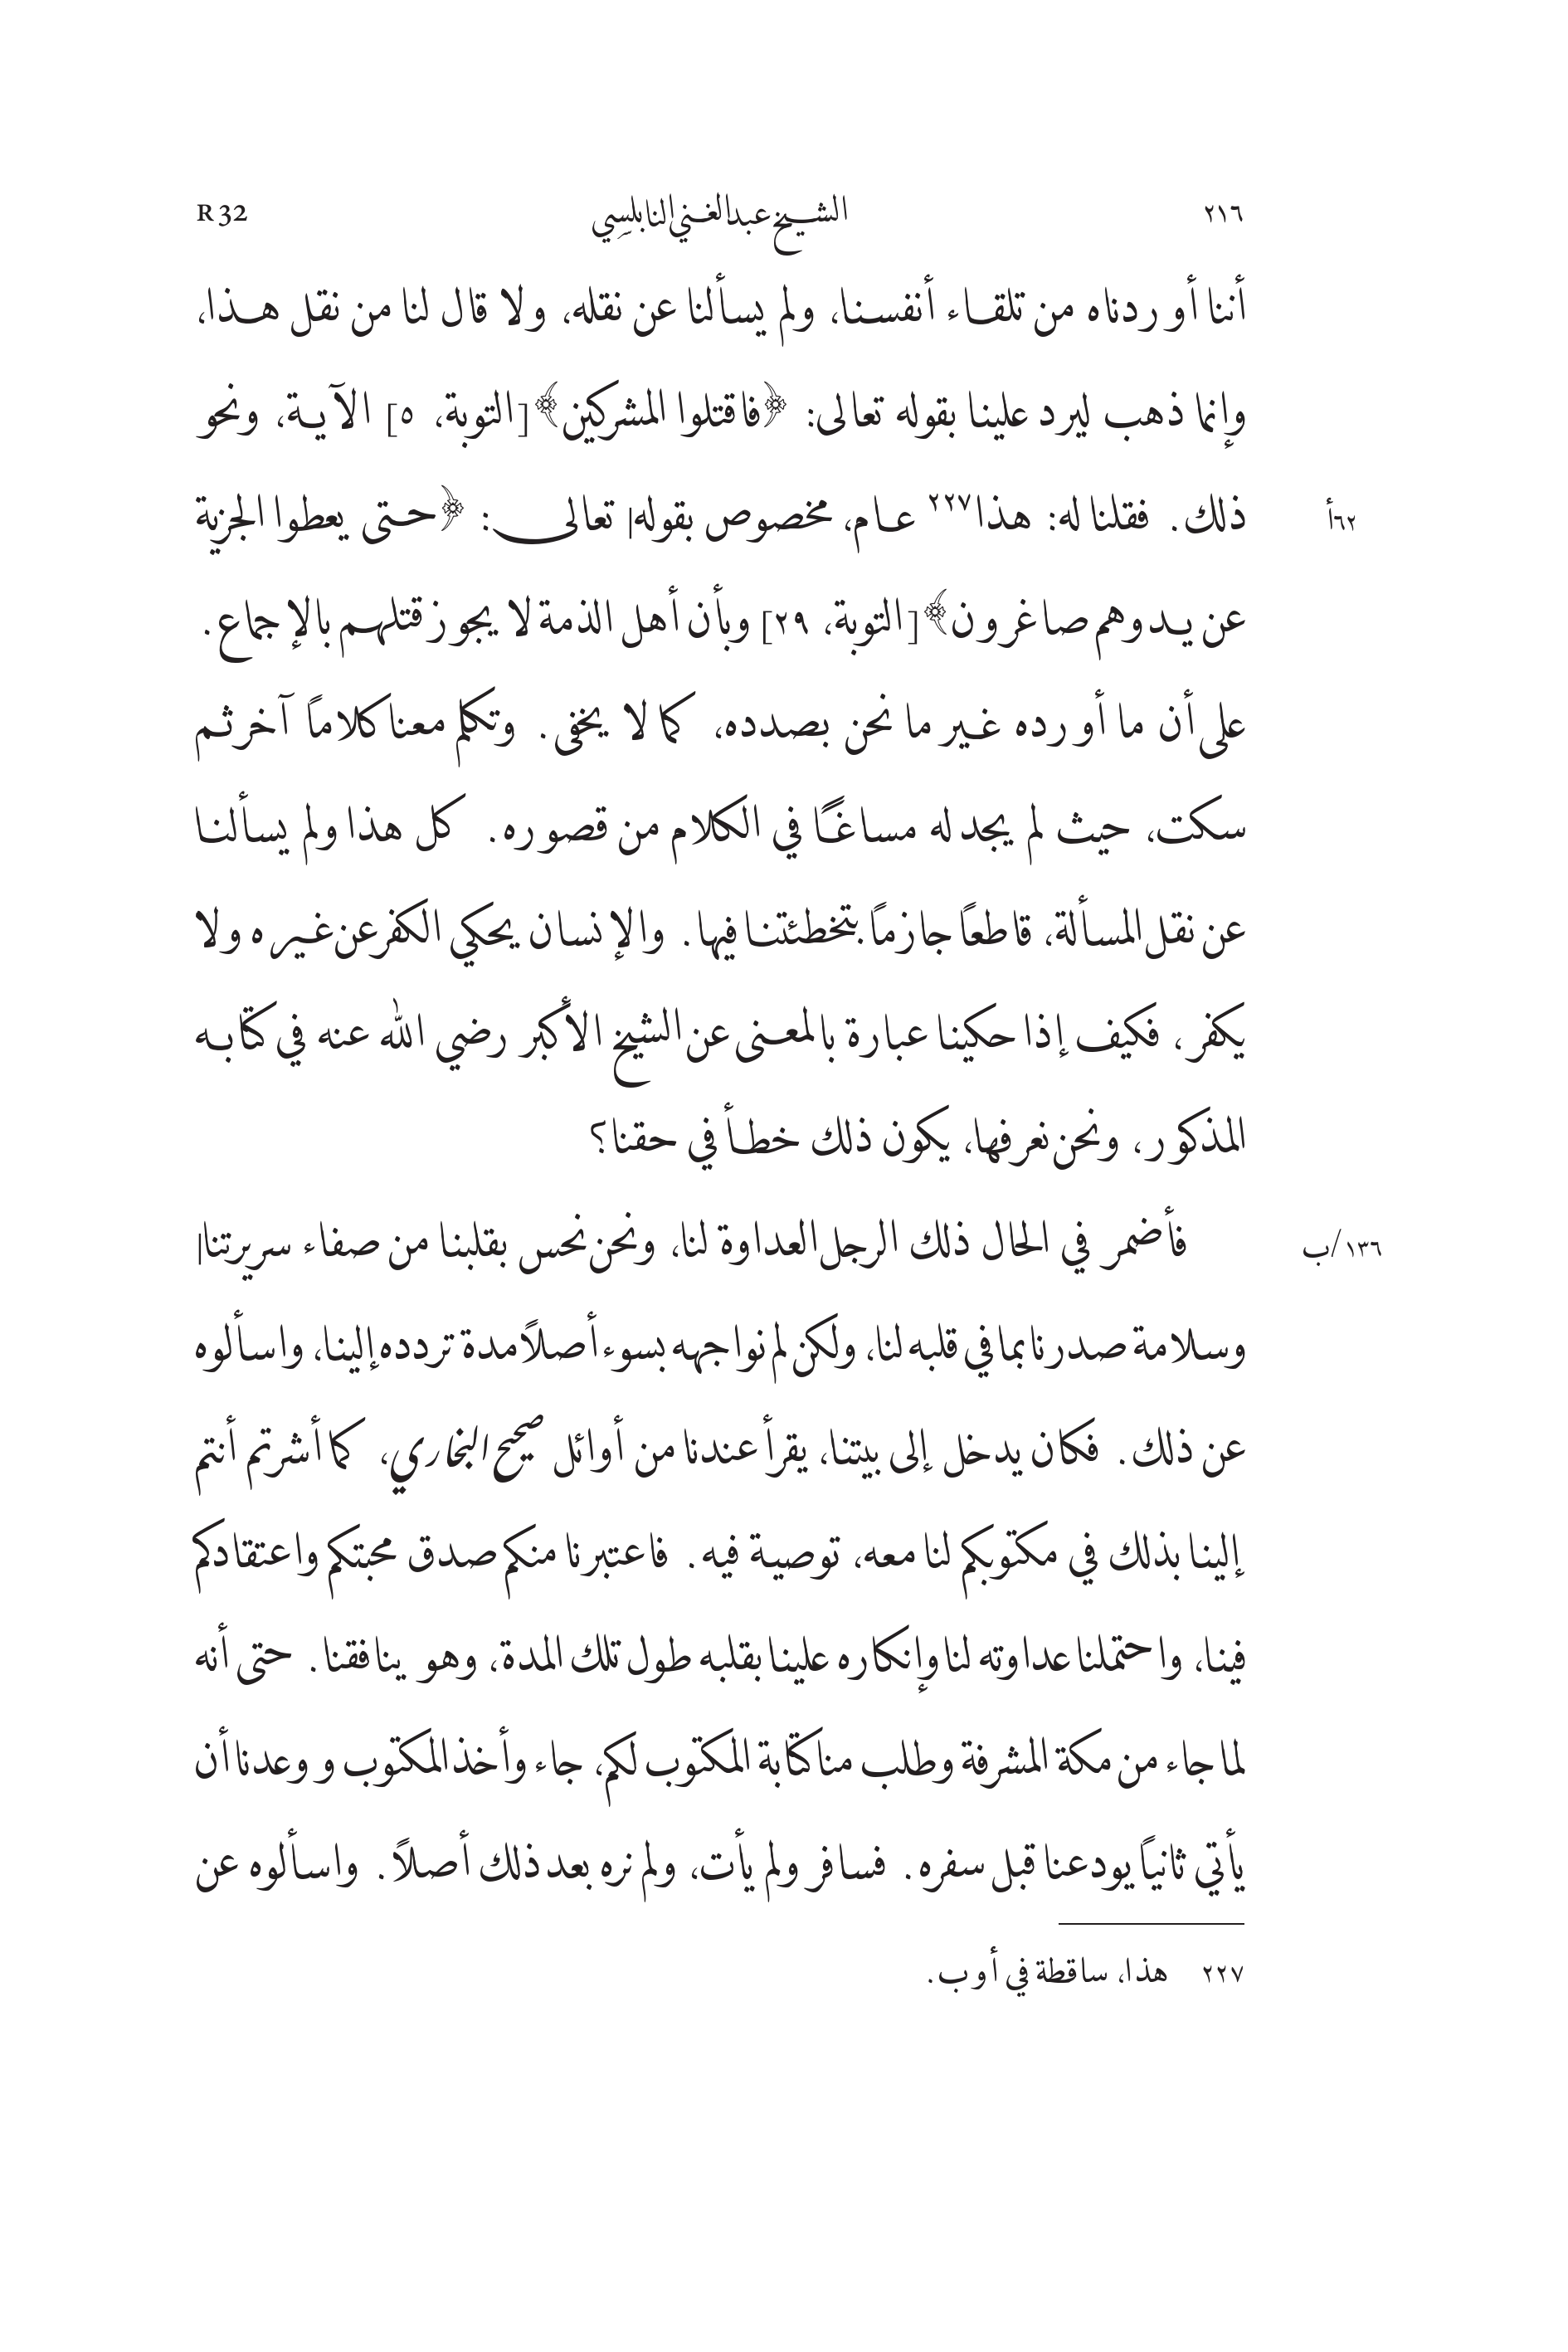 ٢١٦ الشيخ عبد الغني النابلسي R 32
أننا أوردناه من تلقاء أنفسنا، ولم يسألنا عن نقله، ولا قال لنا من نقل هذا،
وإنما ذهب ليرد علينا بقوله تعالى: ﴿فاقتلوا المشركين﴾ [التوبة، ٥] الآية، ونحو
ذلك. فقلنا له: هذا٢٢٧ عام، مخصوص بقوله| تعالى: ﴿حتى يعطوا الجزية
٦٢أ
عن يد وهم صاغرون﴾ [التوبة، ٢٩] وبأن أهل الذمة لا يجوز قتلهم بالإجماع.
على أن ما أورده غير ما نحن بصدده، كما لا يخفى. وتكلم معنا كلاماً آخر ثم
سكت، حيث لم يجد له مساغًا في الكلام من قصوره. كل هذا ولم يسألنا
عن نقل المسألة، قاطعاً جازماً بتخطئتنا فيها. والإنسان يحكي الكفر عن غيره ولا
يكفر، فكيف إذا حكينا عبارة بالمعنى عن الشيخ الأكبر رضي الله عنه في كتابه
المذكور، ونحن نعرفها، يكون ذلك خطأ في حقنا؟
فأضمر في الحال ذلك الرجل العداوة لنا، ونحن نحس بقلبنا من صفاء سريرتنا|
١٣٦/ب
وسلامة صدرنا بما في قلبه لنا، ولكن لم نواجهه بسوء أصلاً مدة تردده إلينا، واسألوه
عن ذلك. فكان يدخل إلى بيتنا، يقرأ عندنا من أوائل صحيح البخاري، كما أشرتم أنتم
إلينا بذلك في مكتوبكم لنا معه، توصية فيه. فاعتبرنا منكم صدق محبتكم واعتقادكم
فينا، واحتملنا عداوته لنا وإنكاره علينا بقلبه طول تلك المدة، وهو ينافقنا. حتى أنه
لما جاء من مكة المشرفة وطلب منا كتابة المكتوب لكم، جاء وأخذ المكتوب ووعدنا أن
يأتي ثانياً يودعنا قبل سفره. فسافر ولم يأت، ولم نره بعد ذلك أصلاً. واسألوه عن
٢٢٧ هذا، ساقطة في أ و ب.